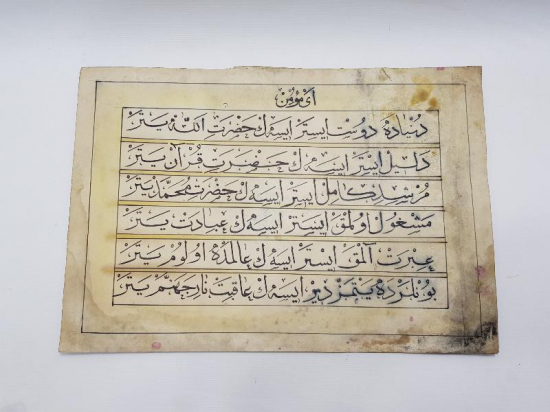 ای مؤمن
دنیاده دوست ایستر ایسه ك حضرت الله یتر
دلیل ایستر ایسه ك حضرت قرآن یتر
مرشد كامل ایستر ایسه ك حضرت محمد یتر
مشغول اولمق ایستر ایسه ك عبادت یتر
عبرت آلمق ایستر ایسه ك عالمده اولوم یتر
بونلرده یتمز دیر ایسه ك عاقبت نار جهنم یتر